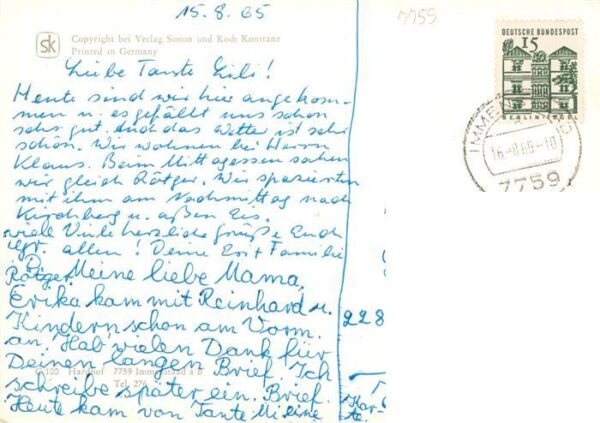 15.8.65
7759
Copyright bei Verlag Simon und Koch Konstanz
Printed in Germany
sk
DEUTSCHE BUNDESPOST
15
BERLIN-TEGEL
16.-8.65-10
7759
Liebe Tante Lili!
Heute sind wir hier angekom-
men u. es gefällt uns schon
sehr gut. Auch das Wetter ist sehr
schön. Wir wohnen bei Herrn
Klaus. Beim Mittagessen sahen
wir gleich Rötger. Wir spazierten
mit ihm am Nachmittag nach
Kirchberg u. aßen Eis.
viele herzliche Grüße Euch
allen! Deine Familie
Rötger
Meine liebe Mama,
Erika kam mit Reinhard u.
Kindern schon am Vorm.
an. Hab' vielen Dank für
Deinen langen Brief. Ich
schreibe später ein. Brief.
Heute kam von Tante eine
Kar-
te.
228
C 100 Hardhof 7759 Immenstaad a. B
Tel. 276